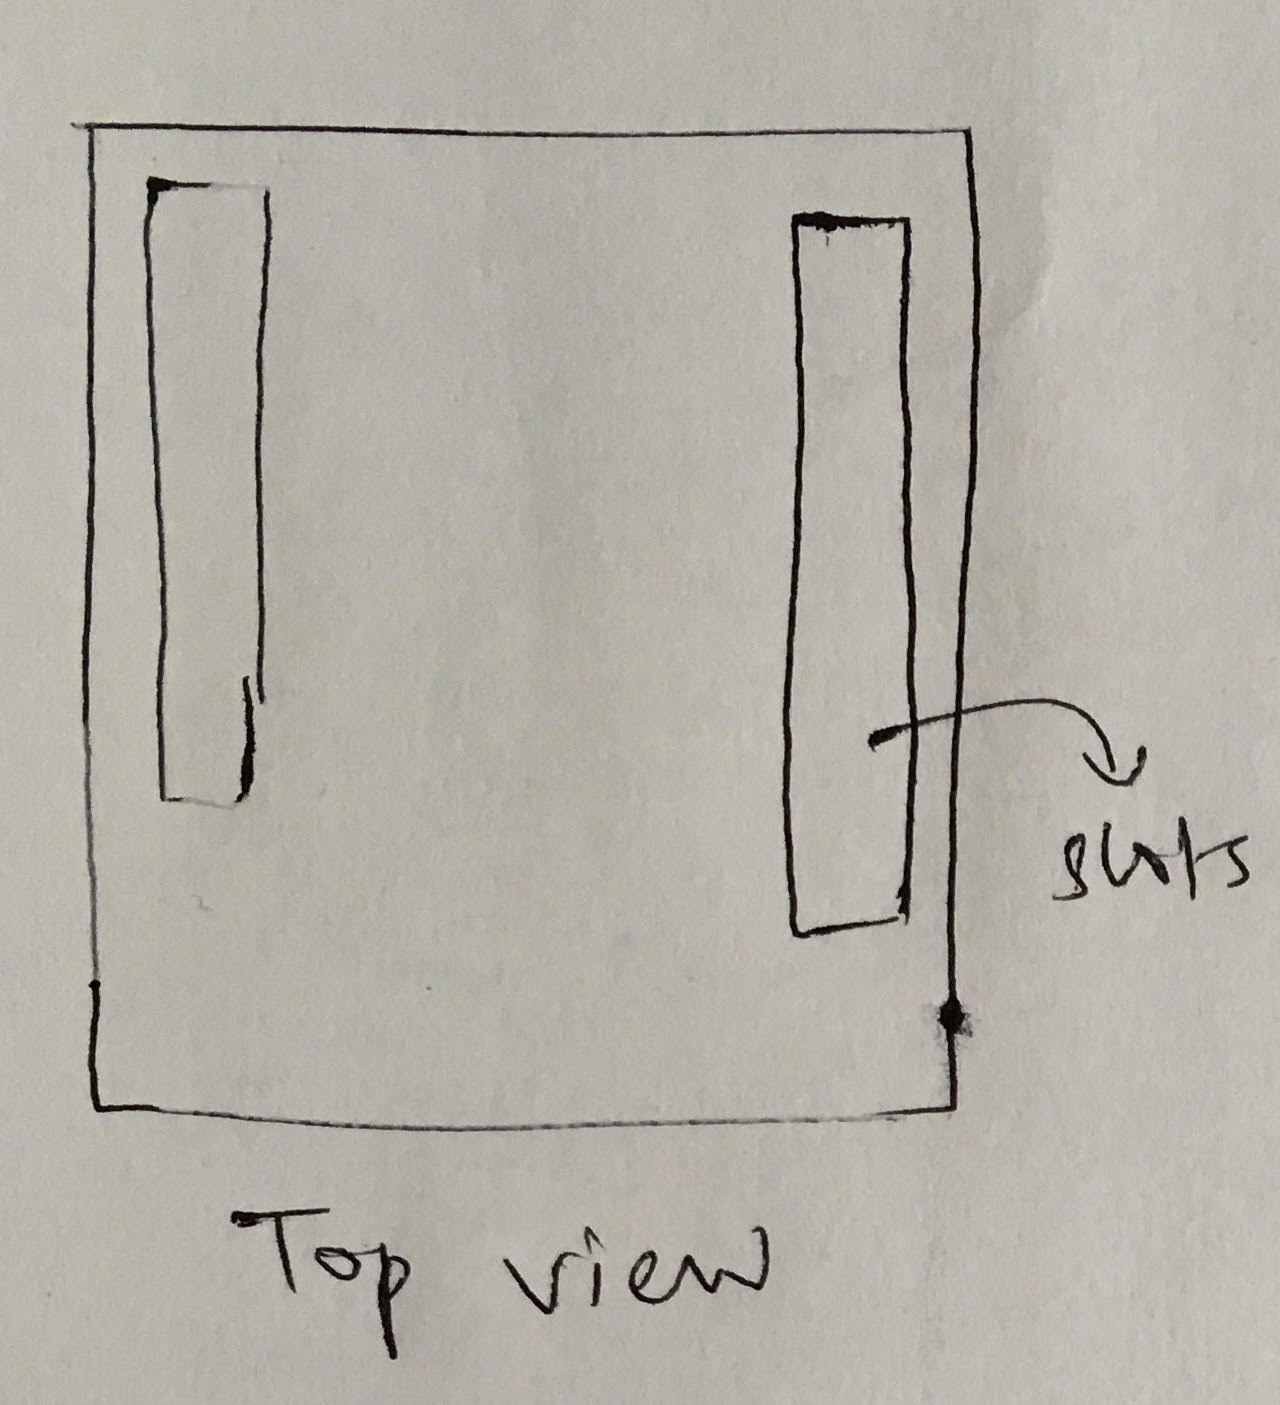 slots
Top view